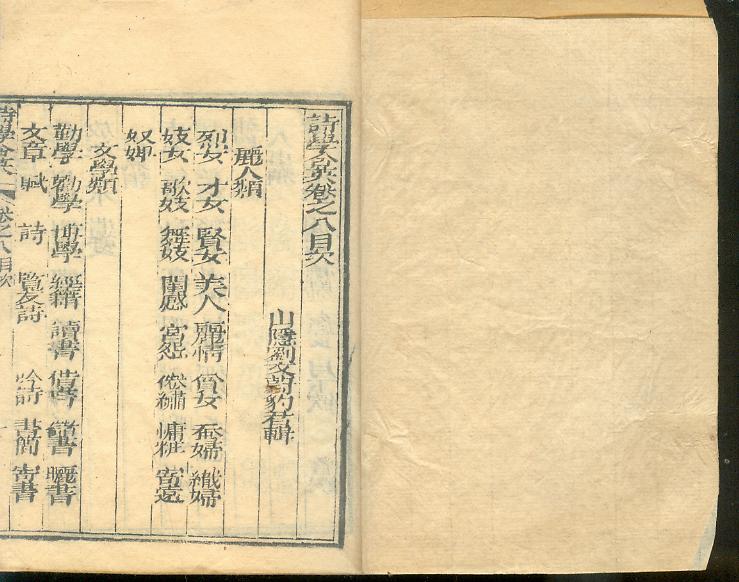 詩學含英卷之八目次
山陰劉文蔚豹君輯
麗人類
烈女 才女 賢女 美人 麗情 貧女 蚕婦 織婦
妓女 歌妓 舞妓 閨感 宮怨 倦繡 慵粧 寄遠
奴婢
文學類
勤學 勸學 博學 經籍 讀書 借書 曬書
文章 賦 詩 覽友詩 吟詩 書簡 寄書
詩學含英 卷之八目次 一